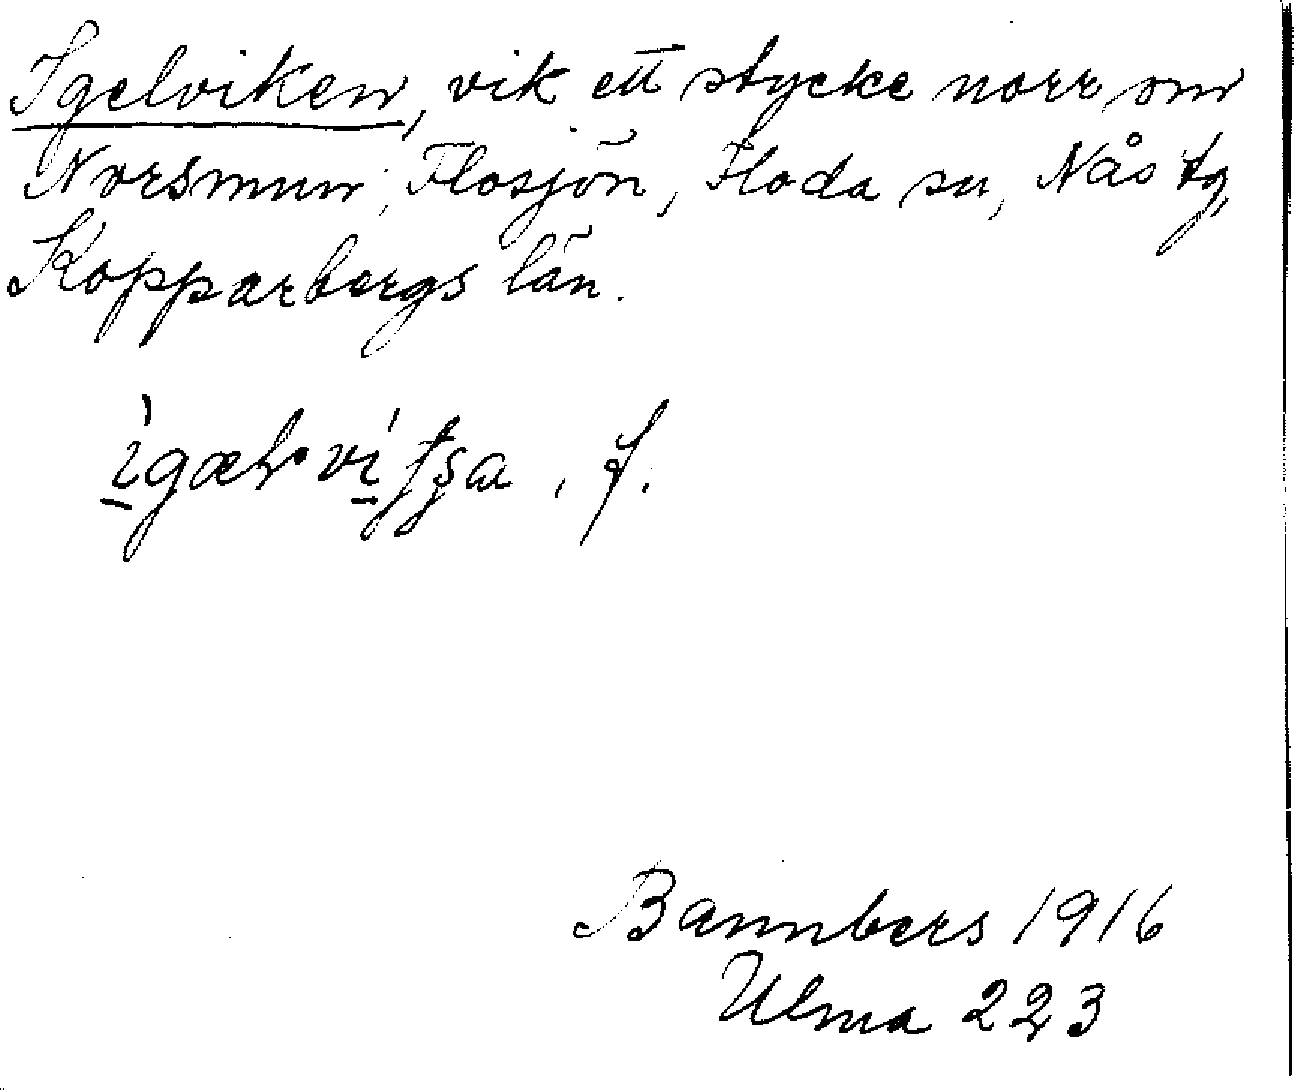 Igelviken, vik ett stycke norr om
Norsmun, Flosjön, Floda sn, Nås tg,
Kopparbergs län.
, f.
Bannbers 1916
Ulma 223